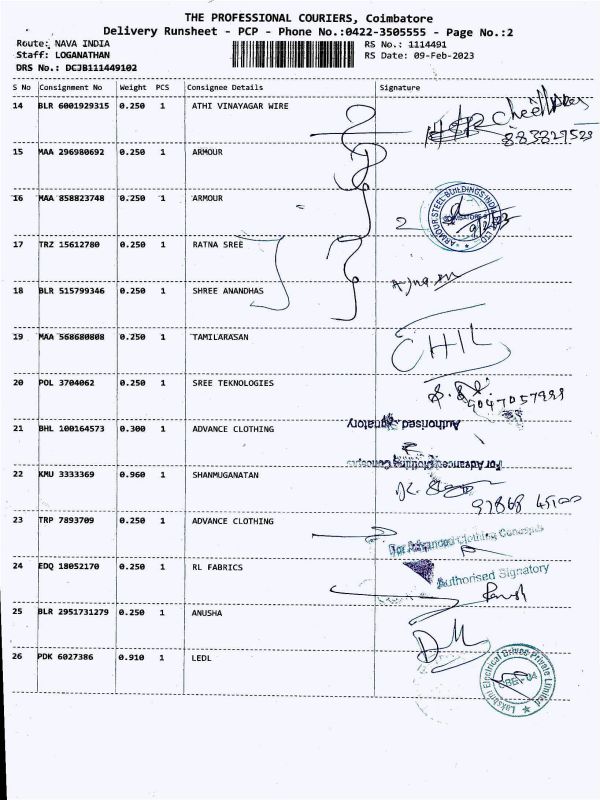 THE PROFESSIONAL COURIERS, Coimbatore
Delivery Runsheet - PCP - Phone No.:0422-3505555 - Page No.:2
Route: NAVA INDIA RS No.: 1114491
Staff: LOGANATHAN RS Date: 09-Feb-2023
DRS No.: DCJB111449102
S No Consignment No Weight PCS Consignee Details Signature
14 BLR 6001929315 0.250 1 ATHI VINAYAGAR WIRE
15 MAA 296980692 0.250 1 ARMOUR
16 MAA 858823748 0.250 1 ARMOUR
ARMOUR STEEL BUILDINGS INDIA
2
17 TRZ 15612780 0.250 1 RATNA SREE
18 BLR 515799346 0.250 1 SHREE ANANDHAS
19 MAA 568680808 0.250 1 TAMILARASAN
CHIL
20 POL 3704062 0.250 1 SREE TEKNOLOGIES
21 BHL 100164573 0.300 1 ADVANCE CLOTHING
Authorised Signatory
For Advanced Clothing Concepts
22 KMU 3333369 0.960 1 SHANMUGANATAN
23 TRP 7893709 0.250 1 ADVANCE CLOTHING
For Advanced Clothing Concepts
24 EDQ 18052170 0.250 1 RL FABRICS
Authorised Signatory
25 BLR 2951731279 0.250 1 ANUSHA
26 PDK 6027386 0.910 1 LEDL
Lakshmi Electrical Drives Private Limited